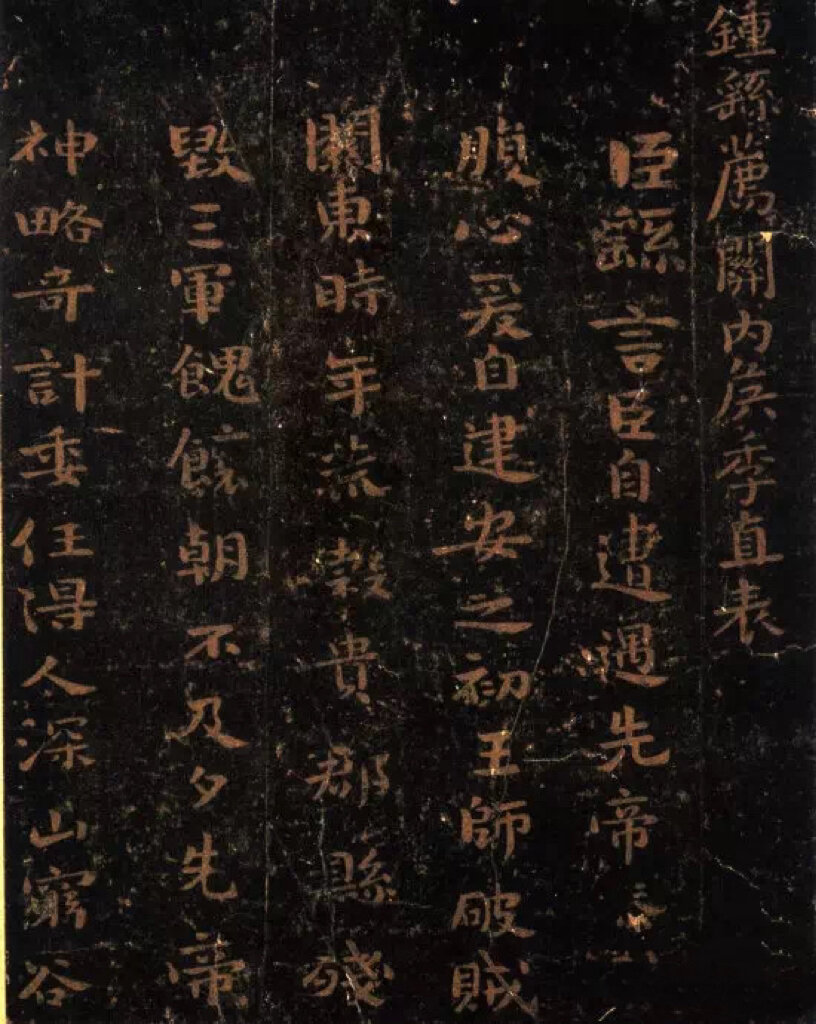 鍾繇薦關内侯季直表
臣繇言臣自遭遇先帝忝
腹心爰自建安之初王師破賊
關東時年荒穀貴郡縣殘
毀三軍餽饟朝不及夕先帝
神略奇計委任得人深山窮谷